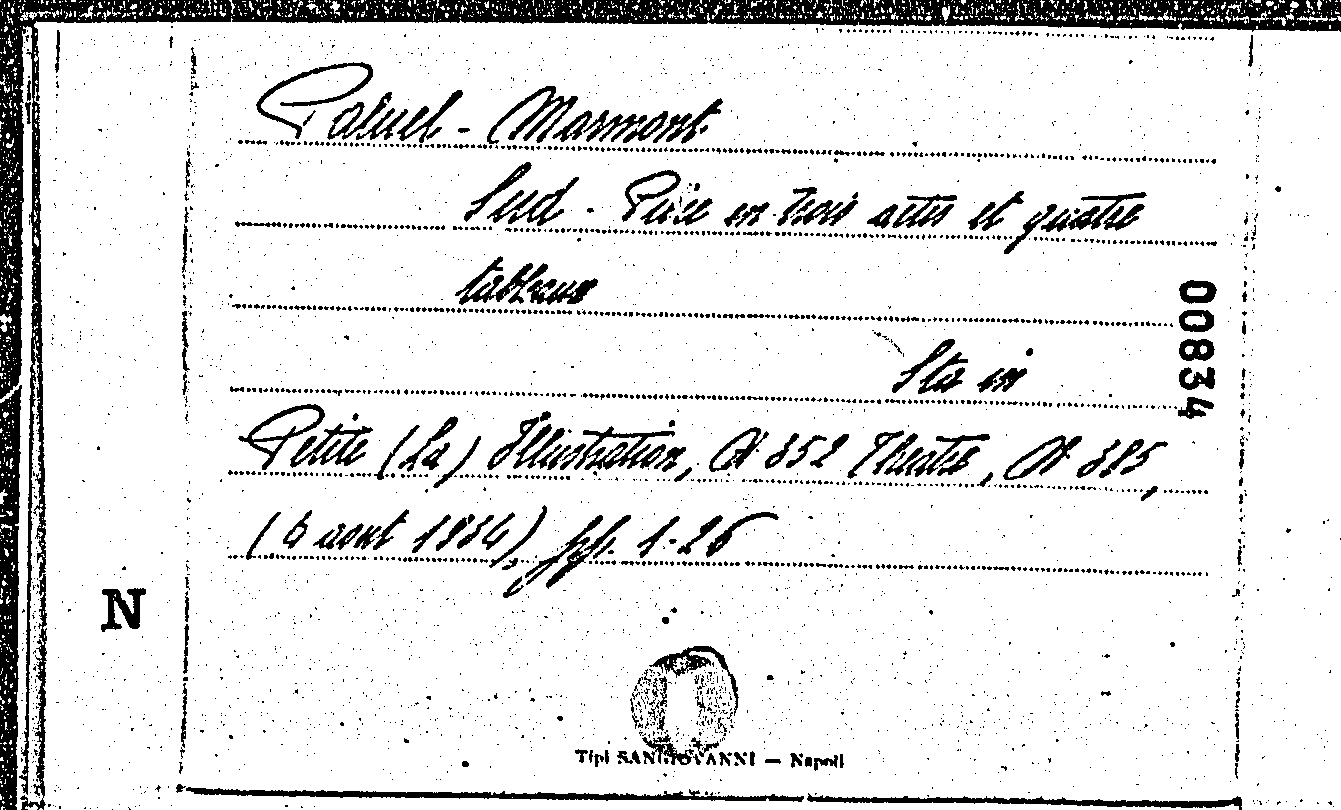 Paluel - Marmont
Sud - Pièce en trois actes et quatre
tableaux
Sta in
Petite (La) Illustration, N 852 Theatre, N 385,
(4 aout 1934), pp. 1-26
00834
N
Tipi SANGIOVANNI — Napoli